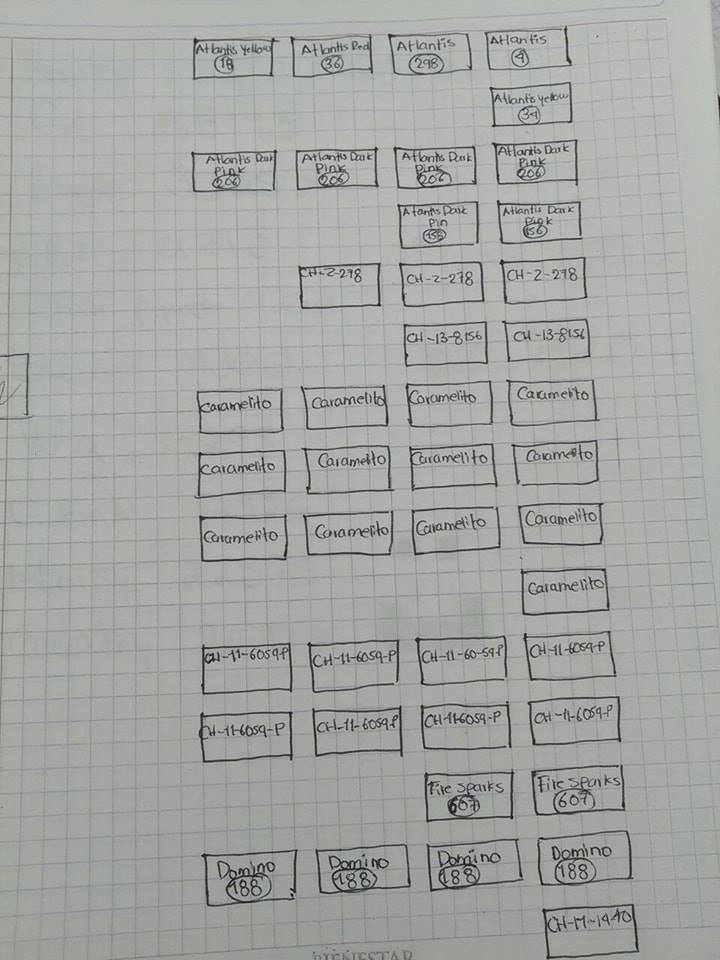 Atlantis Yellow Atlantis Red Atlantis Atlantis
18 36 298 4
Atlantis Yellow
34
Atlantis Dark Atlantis Dark Atlantis Dark Atlantis Dark
Pink Pink Pink Pink
206 206 206 206
Atantis Dark Atlantis Dark
Pin Pink
156 156
CH-2-278 CH-2-278 CH-2-278
CH-13-8156 CH-13-8156
Caramelito Caramelito Caramelito Caramelito
Caramelito Caramelito Caramelito Caramelito
Caramelito Caramelito Caramelito Caramelito
Caramelito
CH-11-6059-P CH-11-6059-P CH-11-60-59-P CH-11-6059-P
CH-11-6059-P CH-11-6059-P CH-11-6059-P CH-11-6059-P
Fire Sparks Fire Sparks
607 607
Domino Domino Domino Domino
188 188 188 188
CH-17-1440
BIENESTAR